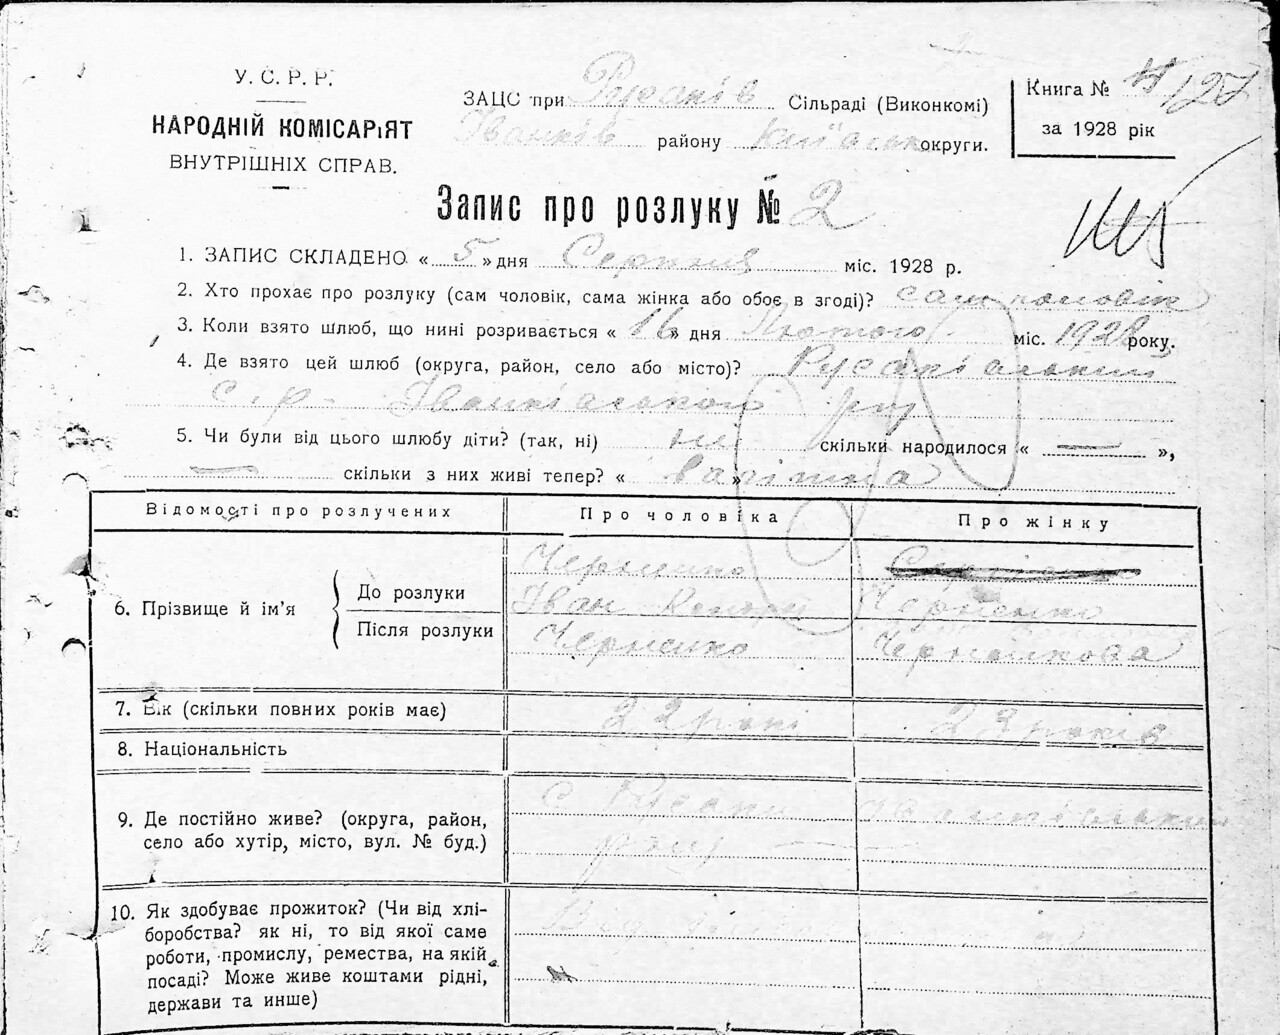 У. С. Р. Р.
НАРОДНІЙ КОМІСАРіЯТ
ВНУТРІШНІХ СПРАВ.
ЗАЦС при Русаків Сільраді (Виконкомі)
Іванків району Київськ округи.
Книга № 127
за 1928 рік
Запис про розлуку № 2
1. ЗАПИС СКЛАДЕНО. « 5 » дня Серпня міс. 1928 р.
2. Хто прохає про розлуку (сам чоловік, сама жінка або обоє в згоді)? сам чоловік
3. Коли взято шлюб, що нині розривається « 16 » дня Лютого міс. 1928 року.
4. Де взято цей шлюб (округа, район, село або місто)? Русаківський
с.р. Іванківського
5. Чи були від цього шлюбу діти? (так, ні) ні скільки народилося « — »,
— скільки з них живі тепер? « вагітна »
Відомості про розлучених Про чоловіка Про жінку
6. Прізвище й ім'я
До розлуки
Після розлуки
Черненко
Іван
Черненко
Черненко
Черненкова
7. Вік (скільки повних років має) 22 роки 23 років
8. Національність
9. Де постійно живе? (округа, район,
село або хутір, місто, вул. № буд.)
с Русаки Іванківський
10. Як здобуває прожиток? (Чи від хлі-
боробства? як ні, то від якої саме
роботи, промислу, ремества, на якій
посаді? Може живе коштами рідні,
держави та инше)